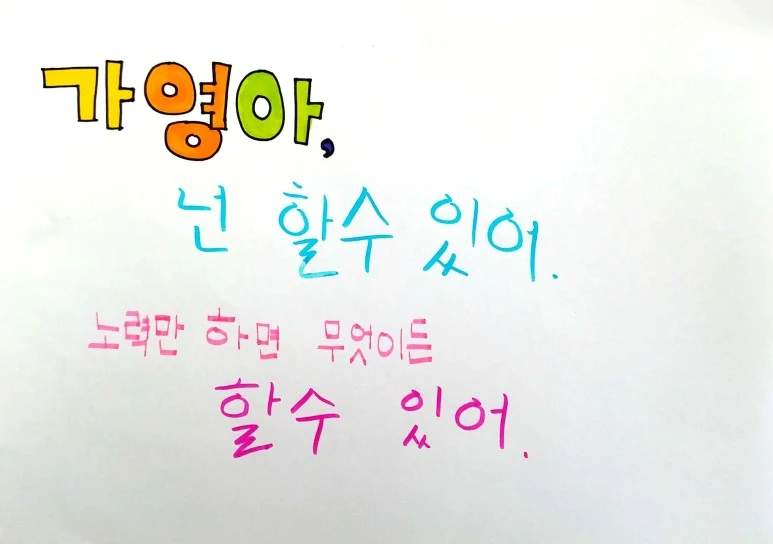 가영아,
넌 할수 있어.
노력만 하면 무엇이든
할수 있어.